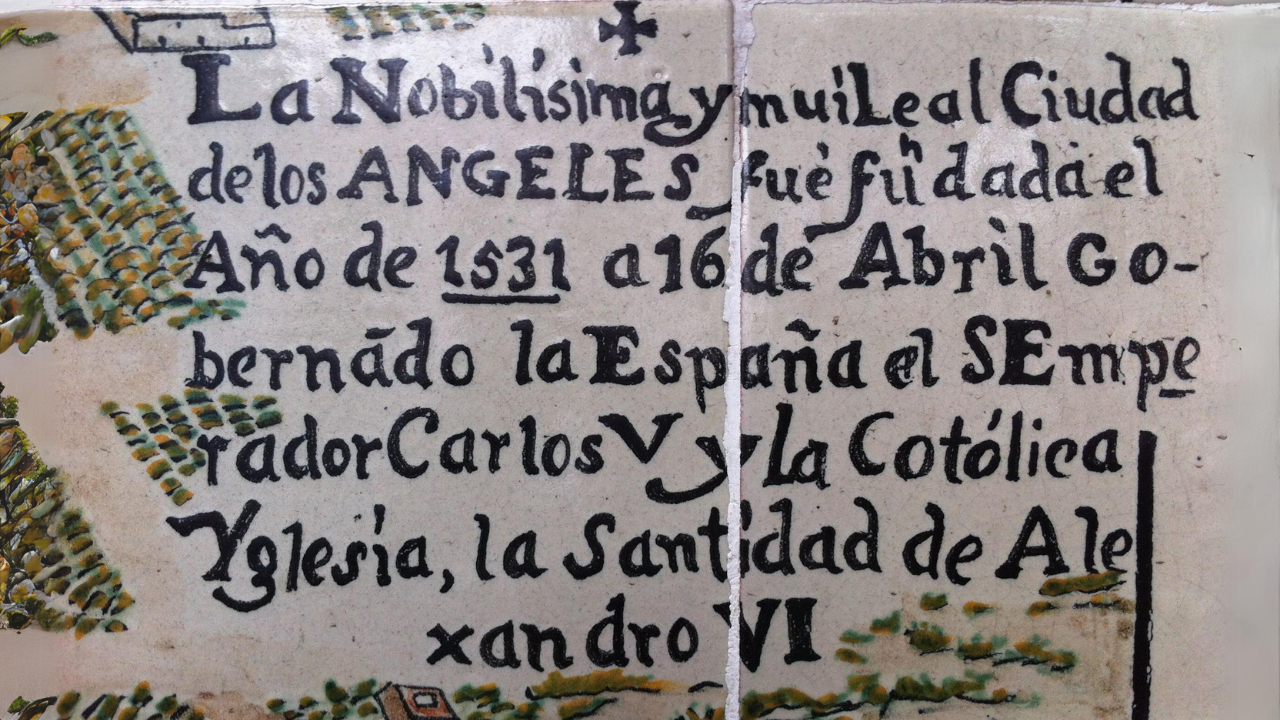 La Nobilísima y mui Leal Ciudad
de los ANGELES fuè fūⁿdada el
Año de 1531 a 16 de Abril Go-
bernādo la España el SEmpe
rador Carlos V y la Cotólica
Yglesia, la Santidad de Ale
xandro VI